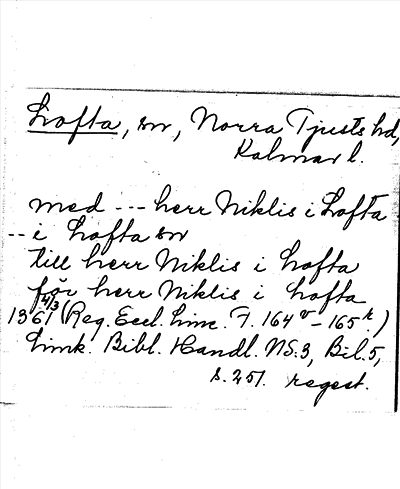 Lofta, sn, Norra Tjusts hd,
Kalmar l.
med --- herr Niklis i Lofta
-- i Lofta sn
till herr Niklis i Lofta
för herr Niklis i Lofta
1361 4/3 (Reg. Eccl. Linc. F. 164v-165r.)
Link. Bibl. Handl. NS:3, Bil. 5,
s. 251. regest.